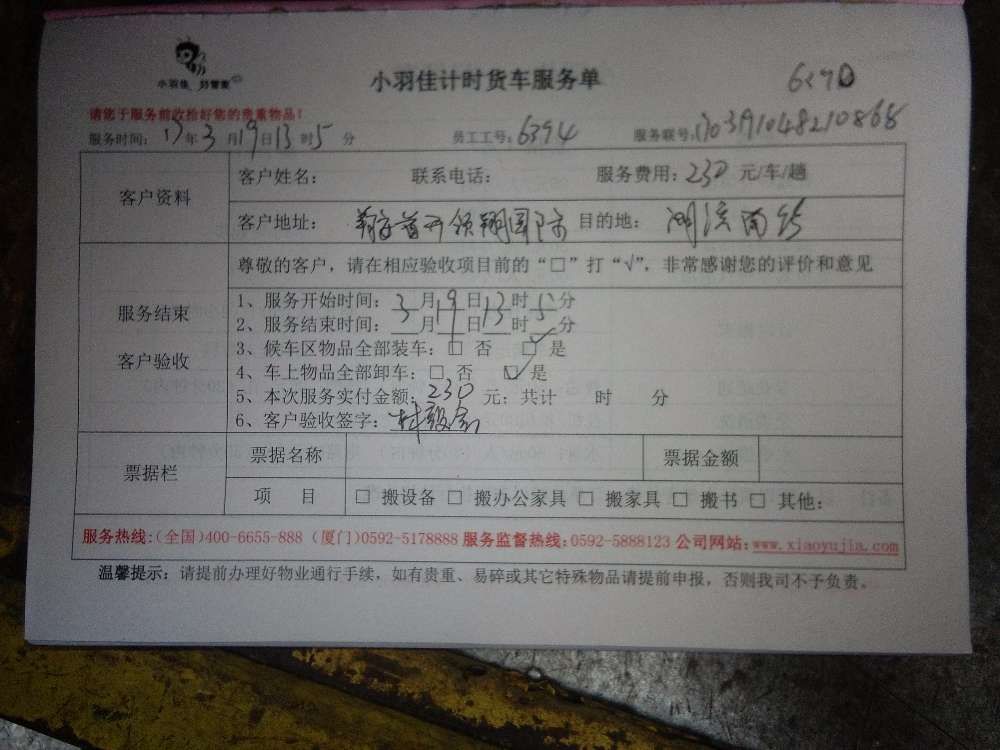 小羽佳 好管家
小羽佳计时货车服务单
请您于服务前收拾好您的贵重物品!
服务时间: 17年3月19日13时5分 员工工号: 6394 服务联号:
客户资料
客户姓名: 联系电话: 服务费用: 230 元/车/趟
客户地址: 首开领翔国际 目的地:
尊敬的客户，请在相应验收项目前的“□”打“√”，非常感谢您的评价和意见
服务结束
客户验收
1、服务开始时间: 3月19日13时5分
2、服务结束时间: 月 日 时 分
3、候车区物品全部装车: □ 否 ☑ 是
4、车上物品全部卸车: □ 否 ☑ 是
5、本次服务实付金额: 230 元; 共计 时 分
6、客户验收签字:
票据栏
票据名称 票据金额
项 目 □ 搬设备 □ 搬办公家具 □ 搬家具 □ 搬书 □ 其他:
服务热线:(全国)400-6655-888 (厦门)0592-5178888 服务监督热线:0592-5888123 公司网站:www.xiaoyujia.com
温馨提示: 请提前办理好物业通行手续，如有贵重、易碎或其它特殊物品请提前申报，否则我司不予负责。